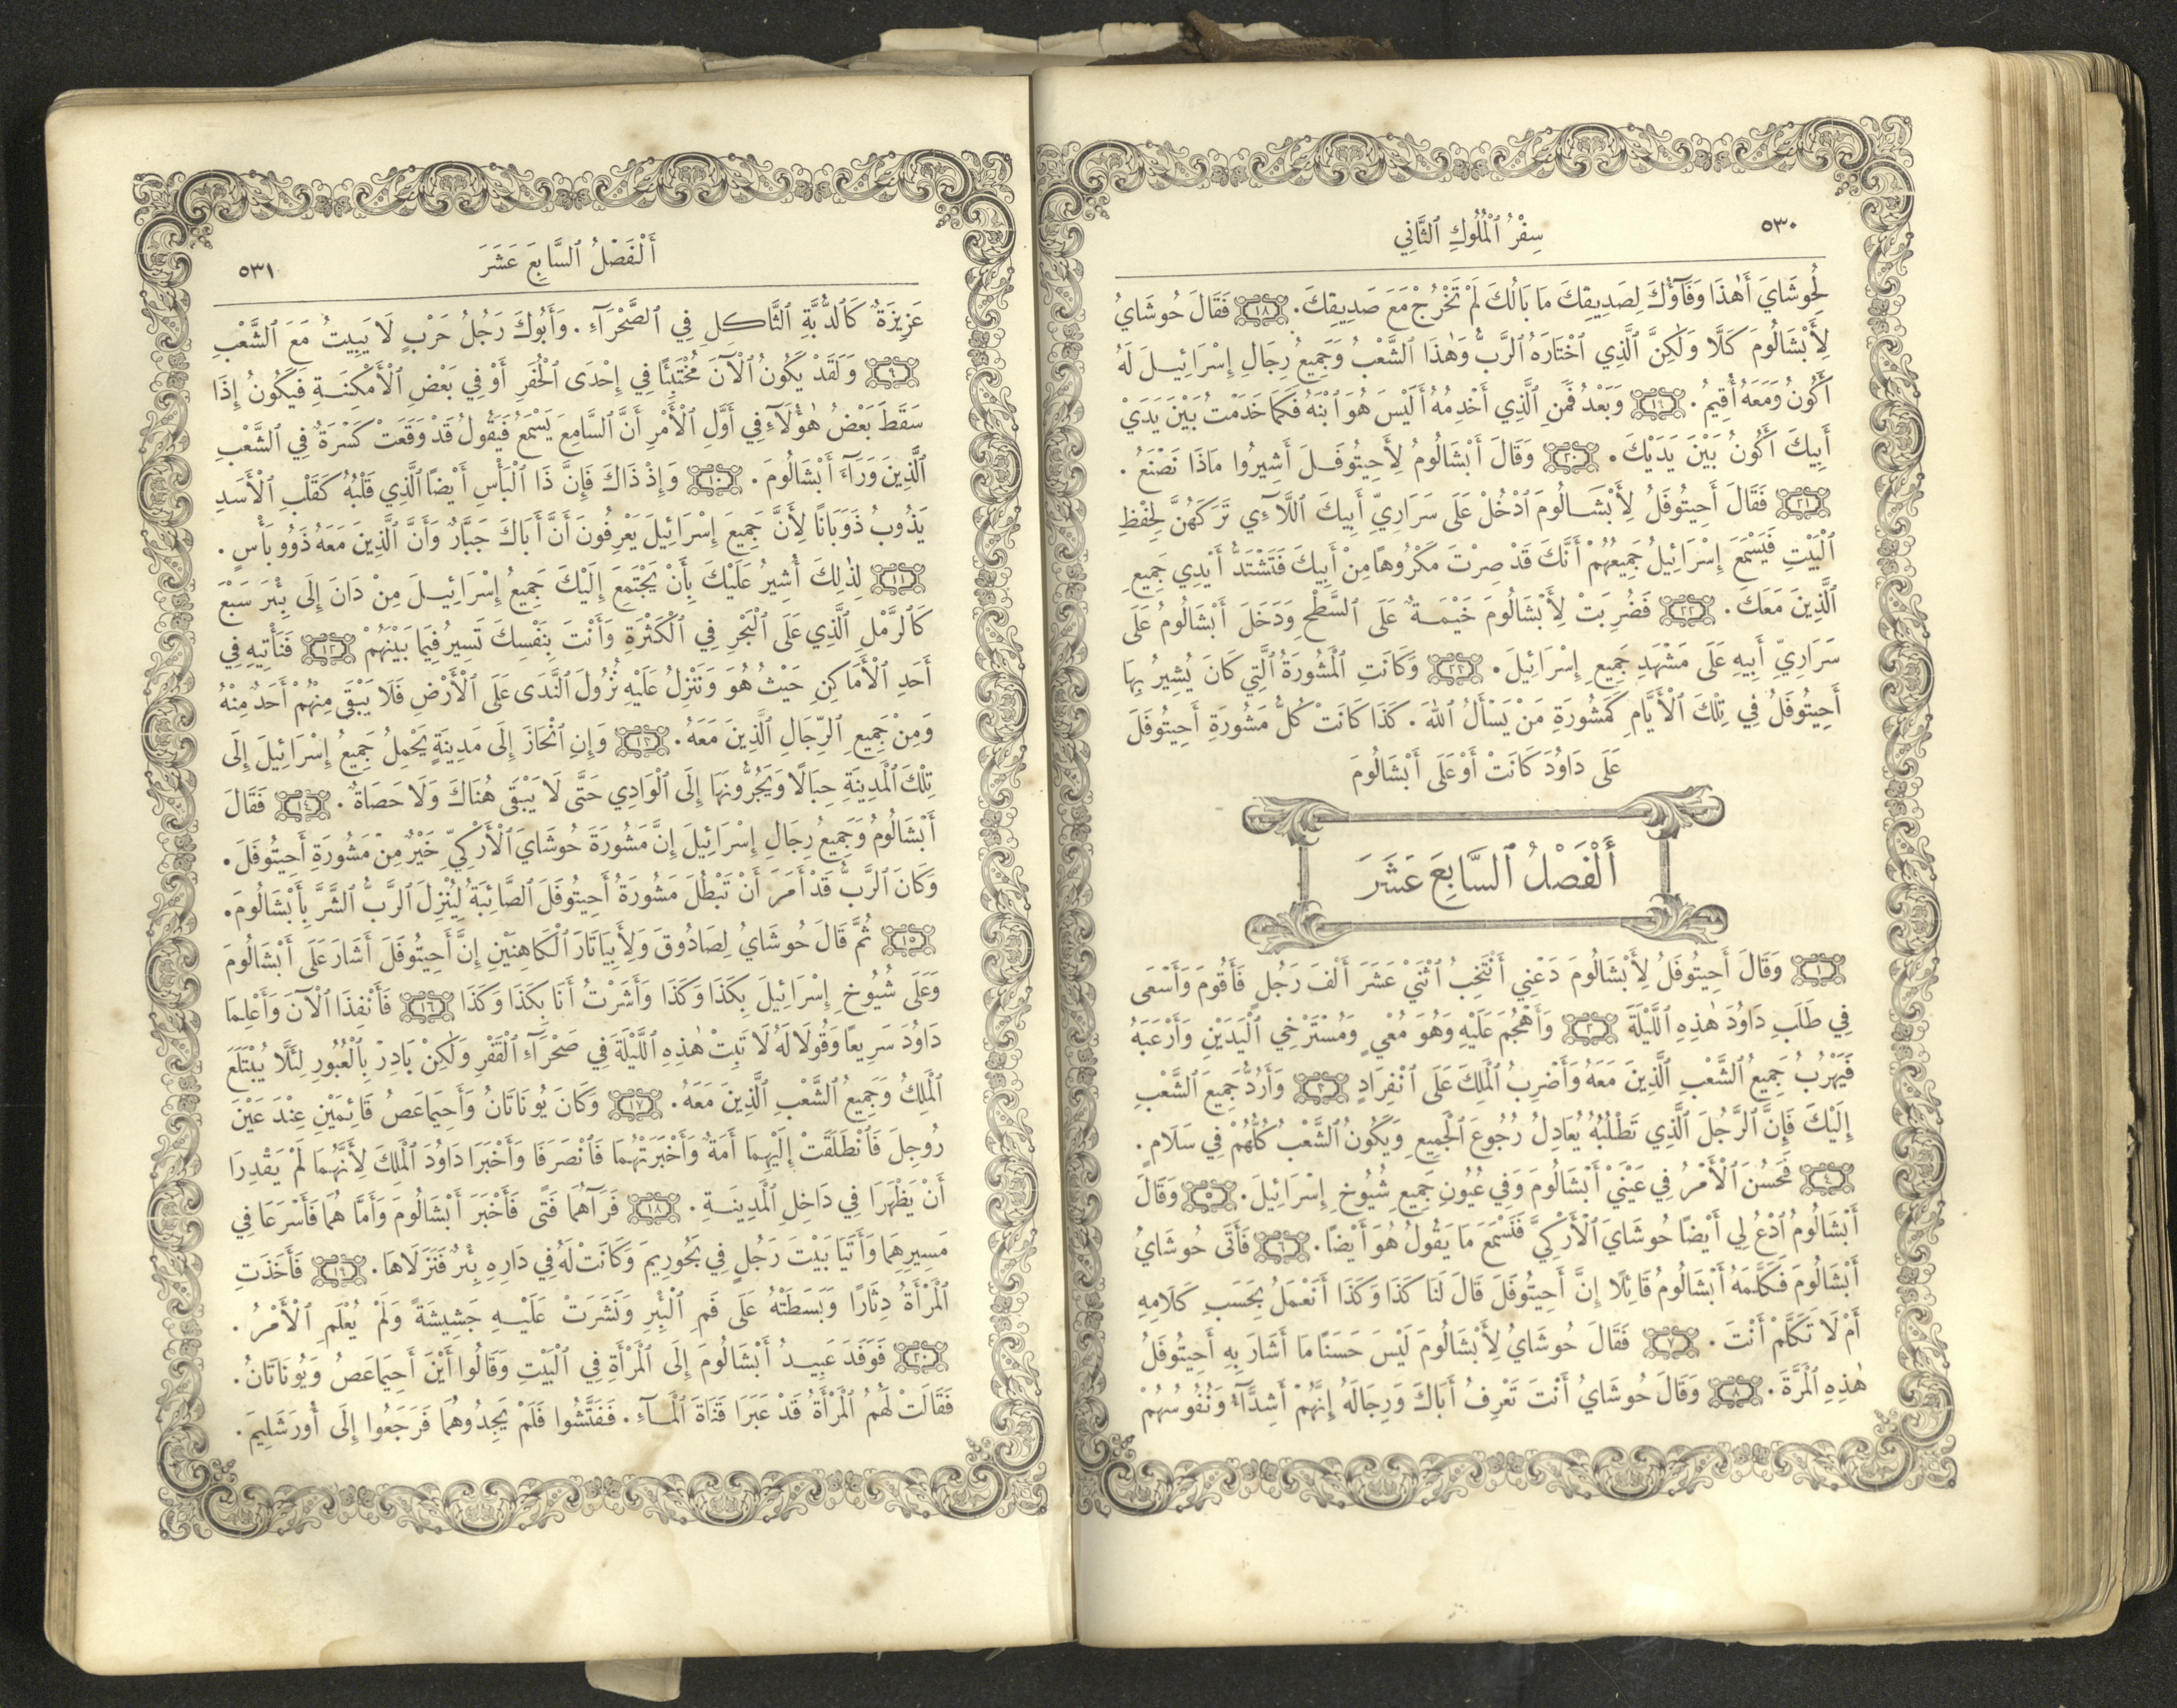 ٥٣٠
سِفْرُ ٱلْمُلُوكِ ٱلثَّانِي
لِحُوشَايَ أَهٰذَا وَفَآؤُكَ لِصَدِيقِكَ مَا بَالُكَ لَمْ تَخْرُجْ مَعَ صَدِيقِكَ. ١٨ فَقَالَ حُوشَايُ
لِأَبْشَالُومَ كَلَّا وَلٰكِنَّ ٱلَّذِي ٱخْتَارَهُ ٱلرَّبُّ وَهٰذَا ٱلشَّعْبُ وَجَمِيعُ رِجَالِ إِسْرَائِيلَ لَهُ
أَكُونُ وَمَعَهُ أُقِيمُ. ١٩ وَبَعْدُ فَمَنِ ٱلَّذِي أَخْدِمُهُ أَلَيْسَ هُوَ ٱبْنَهُ فَكَمَا خَدَمْتُ بَيْنَ يَدَيْ
أَبِيكَ أَكُونُ بَيْنَ يَدَيْكَ. ٢٠ وَقَالَ أَبْشَالُومُ لِأَحِيتُوفَلَ أَشِيرُوا مَاذَا نَصْنَعُ.
٢١ فَقَالَ أَحِيتُوفَلُ لِأَبْشَالُومَ ٱدْخُلْ عَلَى سَرَارِيِّ أَبِيكَ ٱللَّآئِي تَرَكَهُنَّ لِحِفْظِ
ٱلْبَيْتِ فَيَسْمَعَ إِسْرَائِيلُ جَمِيعُهُمْ أَنَّكَ قَدْ صِرْتَ مَكْرُوهًا مِنْ أَبِيكَ فَتَشْتَدُّ أَيْدِي جَمِيعِ
ٱلَّذِينَ مَعَكَ. ٢٢ فَضُرِبَتْ لِأَبْشَالُومَ خَيْمَةٌ عَلَى ٱلسَّطْحِ وَدَخَلَ أَبْشَالُومُ عَلَى
سَرَارِيِّ أَبِيهِ عَلَى مَشْهَدِ جَمِيعِ إِسْرَائِيلَ. ٢٣ وَكَانَتِ ٱلْمَشُورَةُ ٱلَّتِي كَانَ يُشِيرُ بِهَا
أَحِيتُوفَلُ فِي تِلْكَ ٱلْأَيَّامِ كَمَشُورَةِ مَنْ يَسْأَلُ ٱللهَ. كَذَا كَانَتْ كُلُّ مَشُورَةِ أَحِيتُوفَلَ
عَلَى دَاوُدَ كَانَتْ أَوْ عَلَى أَبْشَالُومَ
أَلْفَصْلُ ٱلسَّابِعَ عَشَرَ
١ وَقَالَ أَحِيتُوفَلُ لِأَبْشَالُومَ دَعْنِي أَنْتَخِبُ ٱثْنَيْ عَشَرَ أَلْفَ رَجُلٍ فَأَقُومَ وَأَسْعَى
فِي طَلَبِ دَاوُدَ هٰذِهِ ٱللَّيْلَةَ ٢ وَأَهْجُمَ عَلَيْهِ وَهُوَ مُعْيٍ وَمُسْتَرْخِي ٱلْيَدَيْنِ وَأَرْعَبَهُ
فَيَهْرُبُ جَمِيعُ ٱلشَّعْبِ ٱلَّذِينَ مَعَهُ وَأَضْرِبُ ٱلْمَلِكَ عَلَى ٱنْفِرَادٍ ٣ وَأَرُدُّ جَمِيعَ ٱلشَّعْبِ
إِلَيْكَ فَإِنَّ ٱلرَّجُلَ ٱلَّذِي تَطْلُبُهُ يُعَادِلُ رُجُوعَ ٱلْجَمِيعِ وَيَكُونُ ٱلشَّعْبُ كُلُّهُمْ فِي سَلَامٍ.
٤ فَحَسُنَ ٱلْأَمْرُ فِي عَيْنَيْ أَبْشَالُومَ وَفِي عُيُونِ جَمِيعِ شُيُوخِ إِسْرَائِيلَ. ٥ وَقَالَ
أَبْشَالُومُ ٱدْعُ لِي أَيْضًا حُوشَايَ ٱلْأَرْكِيَّ فَنَسْمَعَ مَا يَقُولُ هُوَ أَيْضًا. ٦ فَأَتَى حُوشَايُ
أَبْشَالُومَ فَكَلَّمَهُ أَبْشَالُومُ قَائِلًا إِنَّ أَحِيتُوفَلَ قَالَ لَنَا كَذَا وَكَذَا أَنَعْمَلُ بِحَسَبِ كَلَامِهِ
أَمْ لَا تَكَلَّمْ أَنْتَ. ٧ فَقَالَ حُوشَايُ لِأَبْشَالُومَ لَيْسَ حَسَنًا مَا أَشَارَ بِهِ أَحِيتُوفَلُ
هٰذِهِ ٱلْمَرَّةَ. ٨ وَقَالَ حُوشَايُ أَنْتَ تَعْرِفُ أَبَاكَ وَرِجَالَهُ إِنَّهُمْ أَشِدَّآءُ وَنُفُوسُهُمْ
أَلْفَصْلُ ٱلسَّابِعَ عَشَرَ
٥٣١
عَزِيزَةٌ كَٱلدُّبَّةِ ٱلثَّاكِلِ فِي ٱلصَّحْرَآءِ. وَأَبُوكَ رَجُلُ حَرْبٍ لَا يَبِيتُ مَعَ ٱلشَّعْبِ
٩ وَلَقَدْ يَكُونُ ٱلْآنَ مُخْتَبِئًا فِي إِحْدَى ٱلْحُفَرِ أَوْ فِي بَعْضِ ٱلْأَمْكِنَةِ فَيَكُونُ إِذَا
سَقَطَ بَعْضُ هٰؤُلَآءِ فِي أَوَّلِ ٱلْأَمْرِ أَنَّ ٱلسَّامِعَ يَسْمَعُ فَيَقُولُ قَدْ وَقَعَتْ كَسْرَةٌ فِي ٱلشَّعْبِ
ٱلَّذِينَ وَرَآءَ أَبْشَالُومَ. ١٠ وَإِذْ ذَاكَ فَإِنَّ ذَا ٱلْبَأْسِ أَيْضًا ٱلَّذِي قَلْبُهُ كَقَلْبِ ٱلْأَسَدِ
يَذُوبُ ذَوَبَانًا لِأَنَّ جَمِيعَ إِسْرَائِيلَ يَعْرِفُونَ أَنَّ أَبَاكَ جَبَّارٌ وَأَنَّ ٱلَّذِينَ مَعَهُ ذَوُو بَأْسٍ.
١١ لِذٰلِكَ أُشِيرُ عَلَيْكَ بِأَنْ يَجْتَمِعَ إِلَيْكَ جَمِيعُ إِسْرَائِيلَ مِنْ دَانَ إِلَى بِئْرَ سَبْعَ
كَٱلرَّمْلِ ٱلَّذِي عَلَى ٱلْبَحْرِ فِي ٱلْكَثْرَةِ وَأَنْتَ بِنَفْسِكَ تَسِيرُ فِيمَا بَيْنَهُمْ ١٢ فَنَأْتِيهِ فِي
أَحَدِ ٱلْأَمَاكِنِ حَيْثُ هُوَ وَنَنْزِلُ عَلَيْهِ نُزُولَ ٱلنَّدَى عَلَى ٱلْأَرْضِ فَلَا يَبْقَى مِنْهُمْ أَحَدٌ مِنْهُ
وَمِنْ جَمِيعِ ٱلرِّجَالِ ٱلَّذِينَ مَعَهُ. ١٣ وَإِنِ ٱنْحَازَ إِلَى مَدِينَةٍ يَحْمِلُ جَمِيعُ إِسْرَائِيلَ إِلَى
تِلْكَ ٱلْمَدِينَةِ حِبَالًا وَيَجُرُّونَهَا إِلَى ٱلْوَادِي حَتَّى لَا يَبْقَى هُنَاكَ وَلَا حَصَاةٌ. ١٤ فَقَالَ
أَبْشَالُومُ وَجَمِيعُ رِجَالِ إِسْرَائِيلَ إِنَّ مَشُورَةَ حُوشَايَ ٱلْأَرْكِيِّ خَيْرٌ مِنْ مَشُورَةِ أَحِيتُوفَلَ.
وَكَانَ ٱلرَّبُّ قَدْ أَمَرَ أَنْ تَبْطُلَ مَشُورَةُ أَحِيتُوفَلَ ٱلصَّائِبَةُ لِيُنْزِلَ ٱلرَّبُّ ٱلشَّرَّ بِأَبْشَالُومَ.
١٥ ثُمَّ قَالَ حُوشَايُ لِصَادُوقَ وَلِأَبِيَاتَارَ ٱلْكَاهِنَيْنِ إِنَّ أَحِيتُوفَلَ أَشَارَ عَلَى أَبْشَالُومَ
وَعَلَى شُيُوخِ إِسْرَائِيلَ بِكَذَا وَكَذَا وَأَشَرْتُ أَنَا بِكَذَا وَكَذَا ١٦ فَأَنْفِذَا ٱلْآنَ وَأَعْلِمَا
دَاوُدَ سَرِيعًا وَقُولَا لَهُ لَا تَبِتْ هٰذِهِ ٱللَّيْلَةَ فِي صَحْرَآءِ ٱلْقَفْرِ وَلٰكِنْ بَادِرْ بِٱلْعُبُورِ لِئَلَّا يُبْتَلَعَ
ٱلْمَلِكُ وَجَمِيعُ ٱلشَّعْبِ ٱلَّذِينَ مَعَهُ. ١٧ وَكَانَ يُونَاتَانُ وَأَحِيمَاعَصُ قَائِمَيْنِ عِنْدَ عَيْنَ
رُوجِلَ فَٱنْطَلَقَتْ إِلَيْهِمَا أَمَةٌ وَأَخْبَرَتْهُمَا فَٱنْصَرَفَا وَأَخْبَرَا دَاوُدَ ٱلْمَلِكَ لِأَنَّهُمَا لَمْ يَقْدِرَا
أَنْ يَظْهَرَا فِي دَاخِلِ ٱلْمَدِينَةِ. ١٨ فَرَآهُمَا فَتًى فَأَخْبَرَ أَبْشَالُومَ وَأَمَّا هُمَا فَأَسْرَعَا فِي
مَسِيرِهِمَا وَأَتَيَا بَيْتَ رَجُلٍ فِي بَحُورِيمَ وَكَانَتْ لَهُ فِي دَارِهِ بِئْرٌ فَنَزَلَاهَا. ١٩ فَأَخَذَتِ
ٱلْمَرْأَةُ دِثَارًا وَبَسَطَتْهُ عَلَى فَمِ ٱلْبِئْرِ وَنَشَرَتْ عَلَيْهِ جَشِيشَةً وَلَمْ يُعْلَمِ ٱلْأَمْرُ.
٢٠ فَوَفَدَ عَبِيدُ أَبْشَالُومَ إِلَى ٱلْمَرْأَةِ فِي ٱلْبَيْتِ وَقَالُوا أَيْنَ أَحِيمَاعَصُ وَيُونَاتَانُ.
فَقَالَتْ لَهُمُ ٱلْمَرْأَةُ قَدْ عَبَرَا قَنَاةَ ٱلْمَآءِ. فَفَتَّشُوا فَلَمْ يَجِدُوهُمَا فَرَجَعُوا إِلَى أُورَشَلِيمَ.